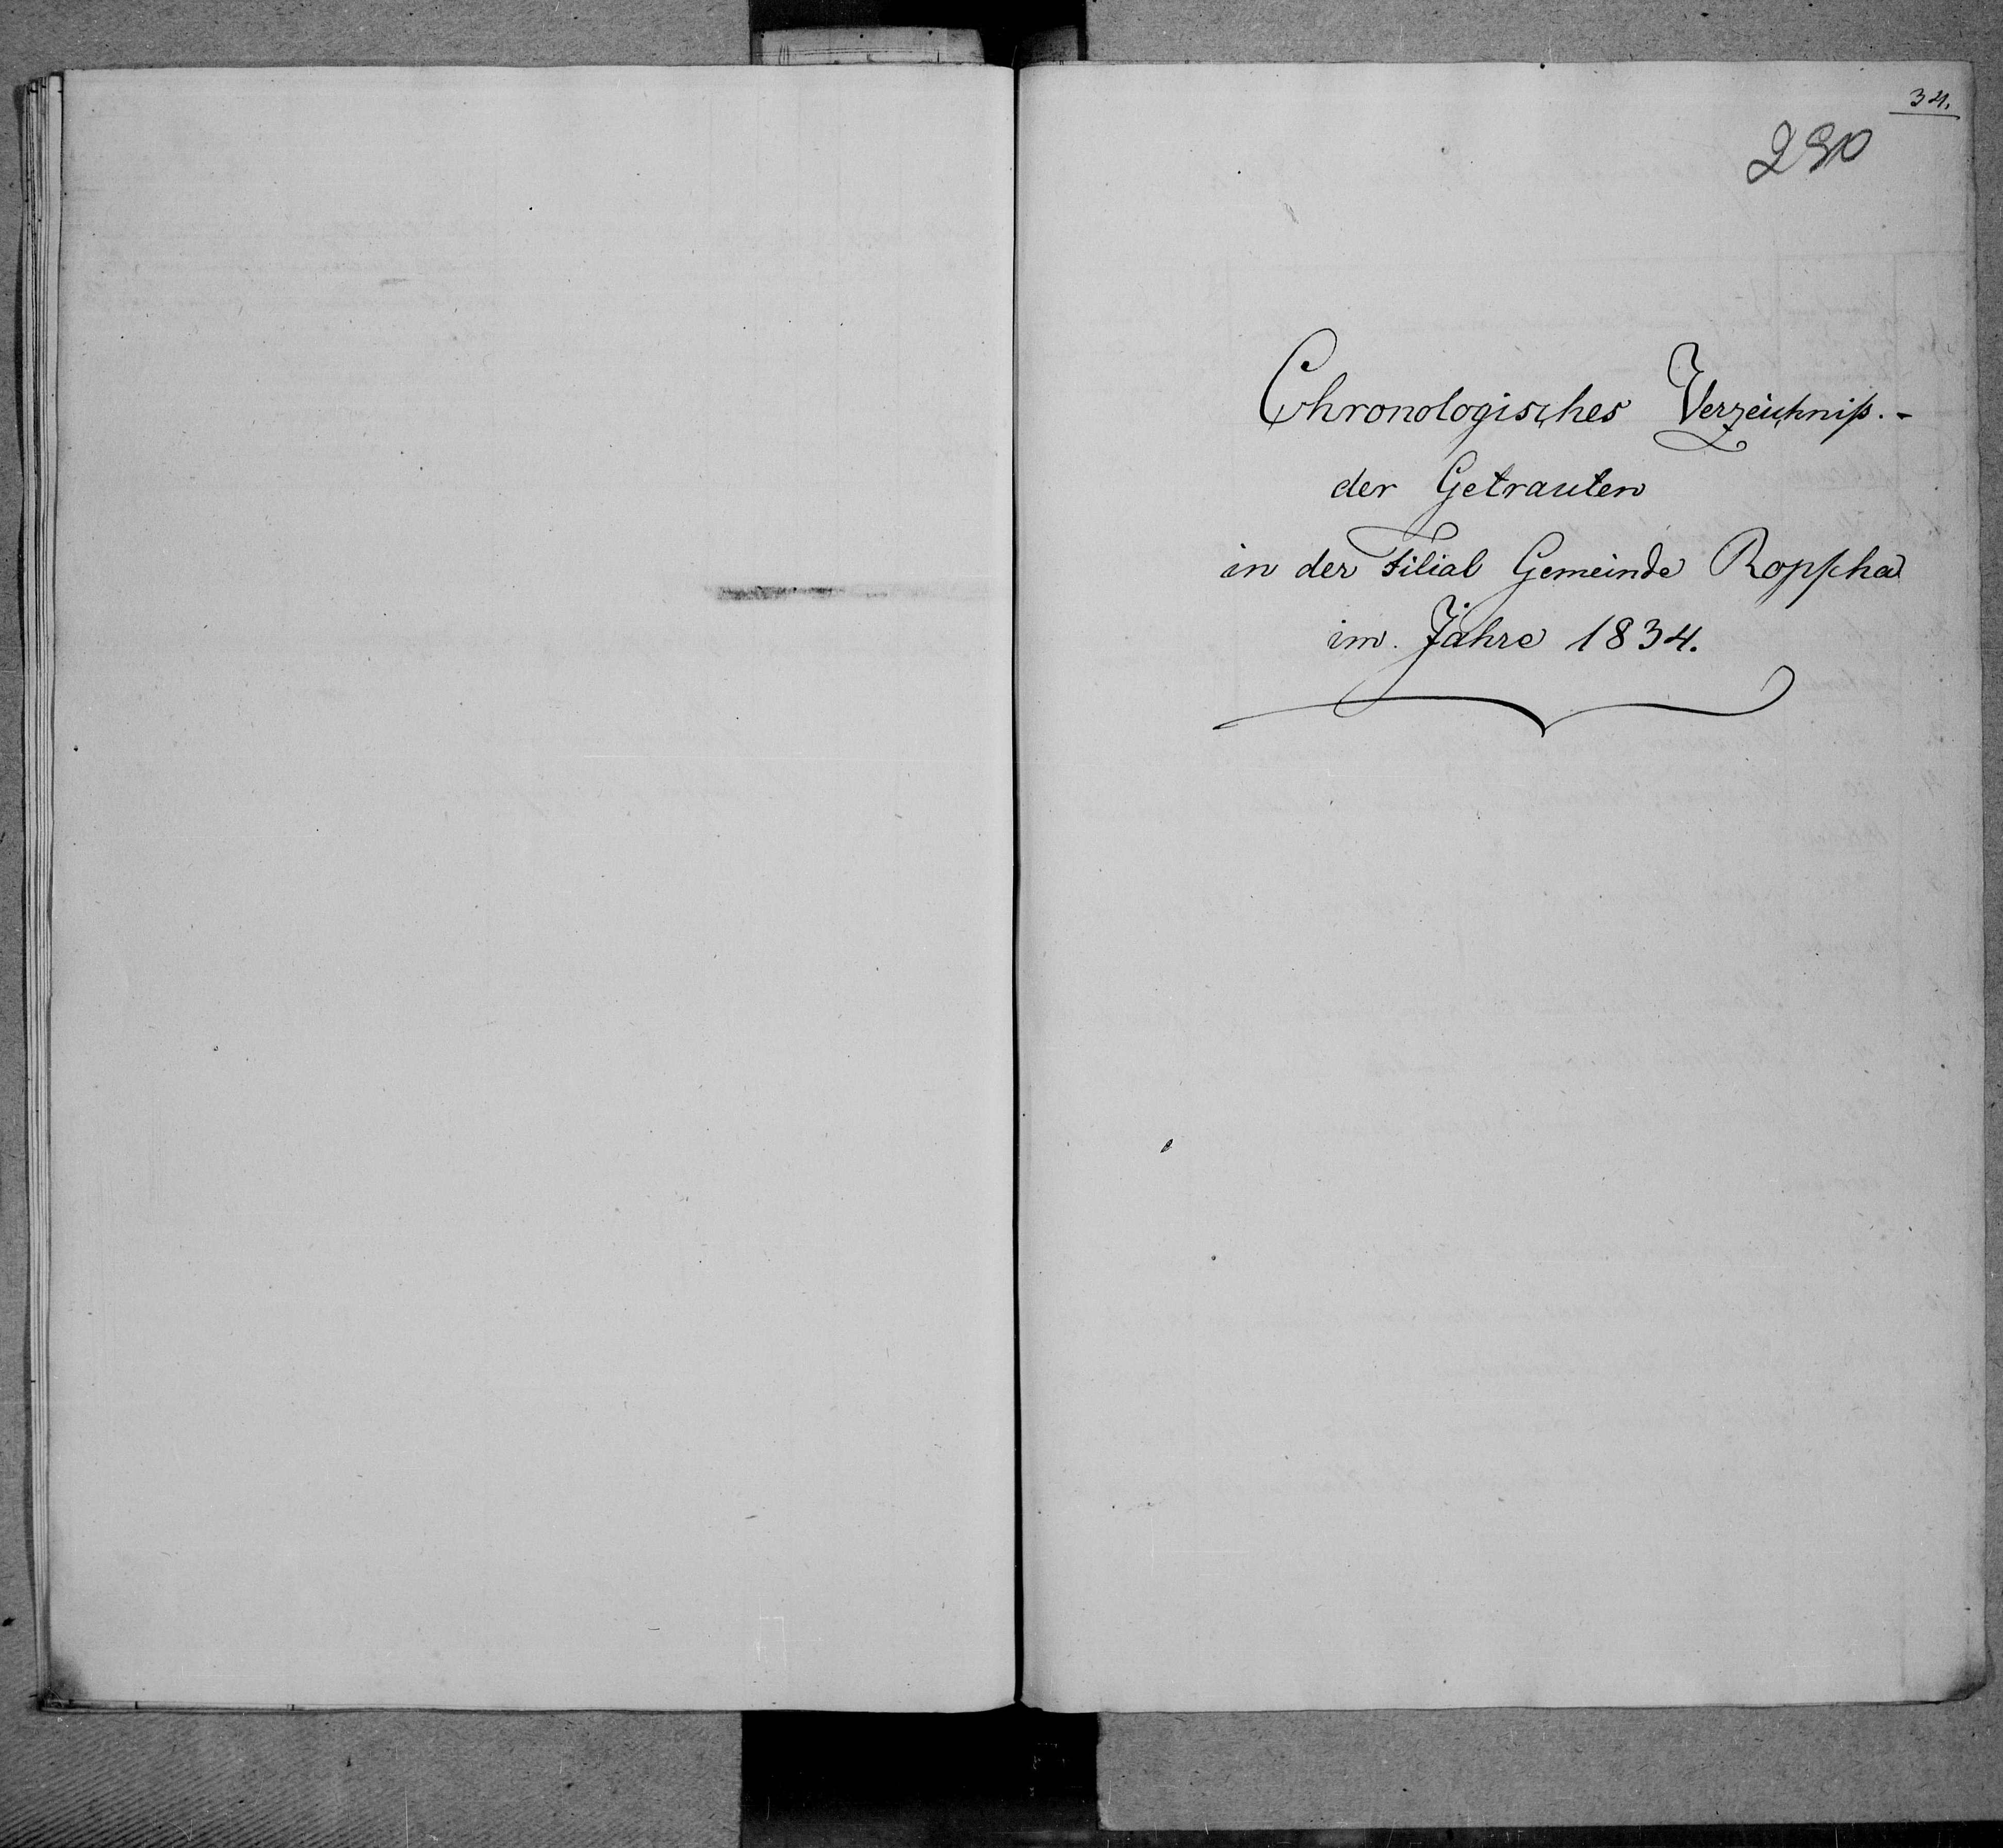 34.
290
Chronologisches Verzeichniß.-
der Getrauten
in der Filial Gemeinde Ropscha
im Jahre 1834.